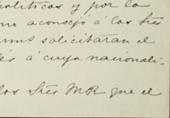 políticas y por lo
aconsejó á los Sres
solicitaran el
á cuya nacionali-
los Sres M R que el